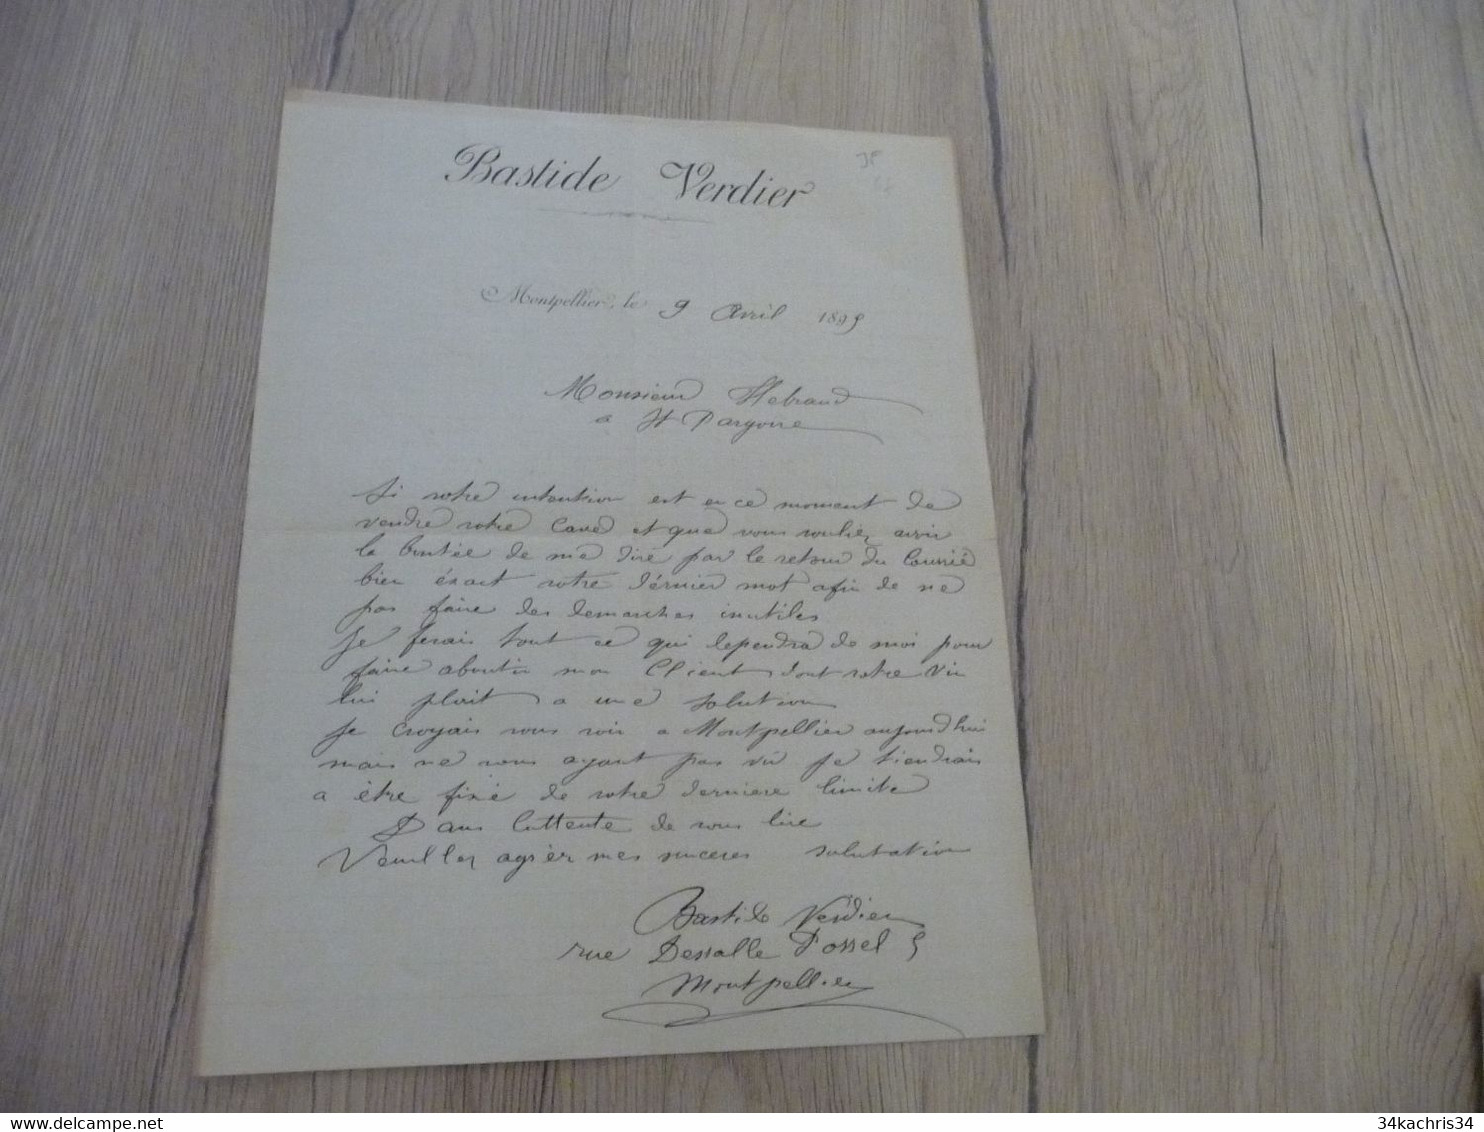 Bastide Verdier
Montpellier, le 9 Avril 1895
Monsieur Hebraud
a St Pargoire
Si votre intention est en ce moment de
vendre votre Cave et que vous vouliez avoir
la bontée de me dire par le retour du Courrié
bien éxact votre dérnier mot afin de ne
pas faire des demarches inutiles
Je ferais tout ce qui dependra de moi pour
faire aboutir mon Client dont votre vin
lui plait a une solution
Je Croyais vous voir a Montpellier aujourd'hui
mais ne vous ayant pas vu Je tiendrais
a être fixé de votre derniere limite
Dans l'attente de vous lire
Veuillez agréer mes sinceres salutation
Bastide Verdier
rue Dessalle Possel 5
Montpellier
34kachris34